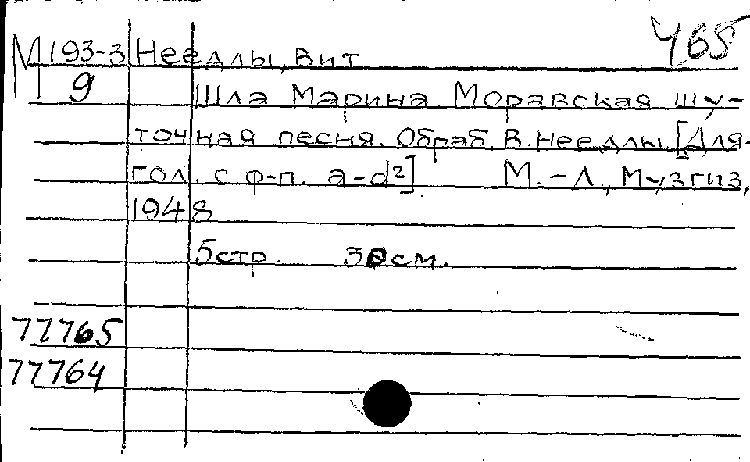 М 193-3 Неедлы, Вит 465
9 Шла Марина Моравская шу-
точная песня. Обраб. В. Неедлы. [Для
гол. с ф-п. a-d²] М.-Л., Музгиз,
1948
5 стр. 30 см.
77765
77764